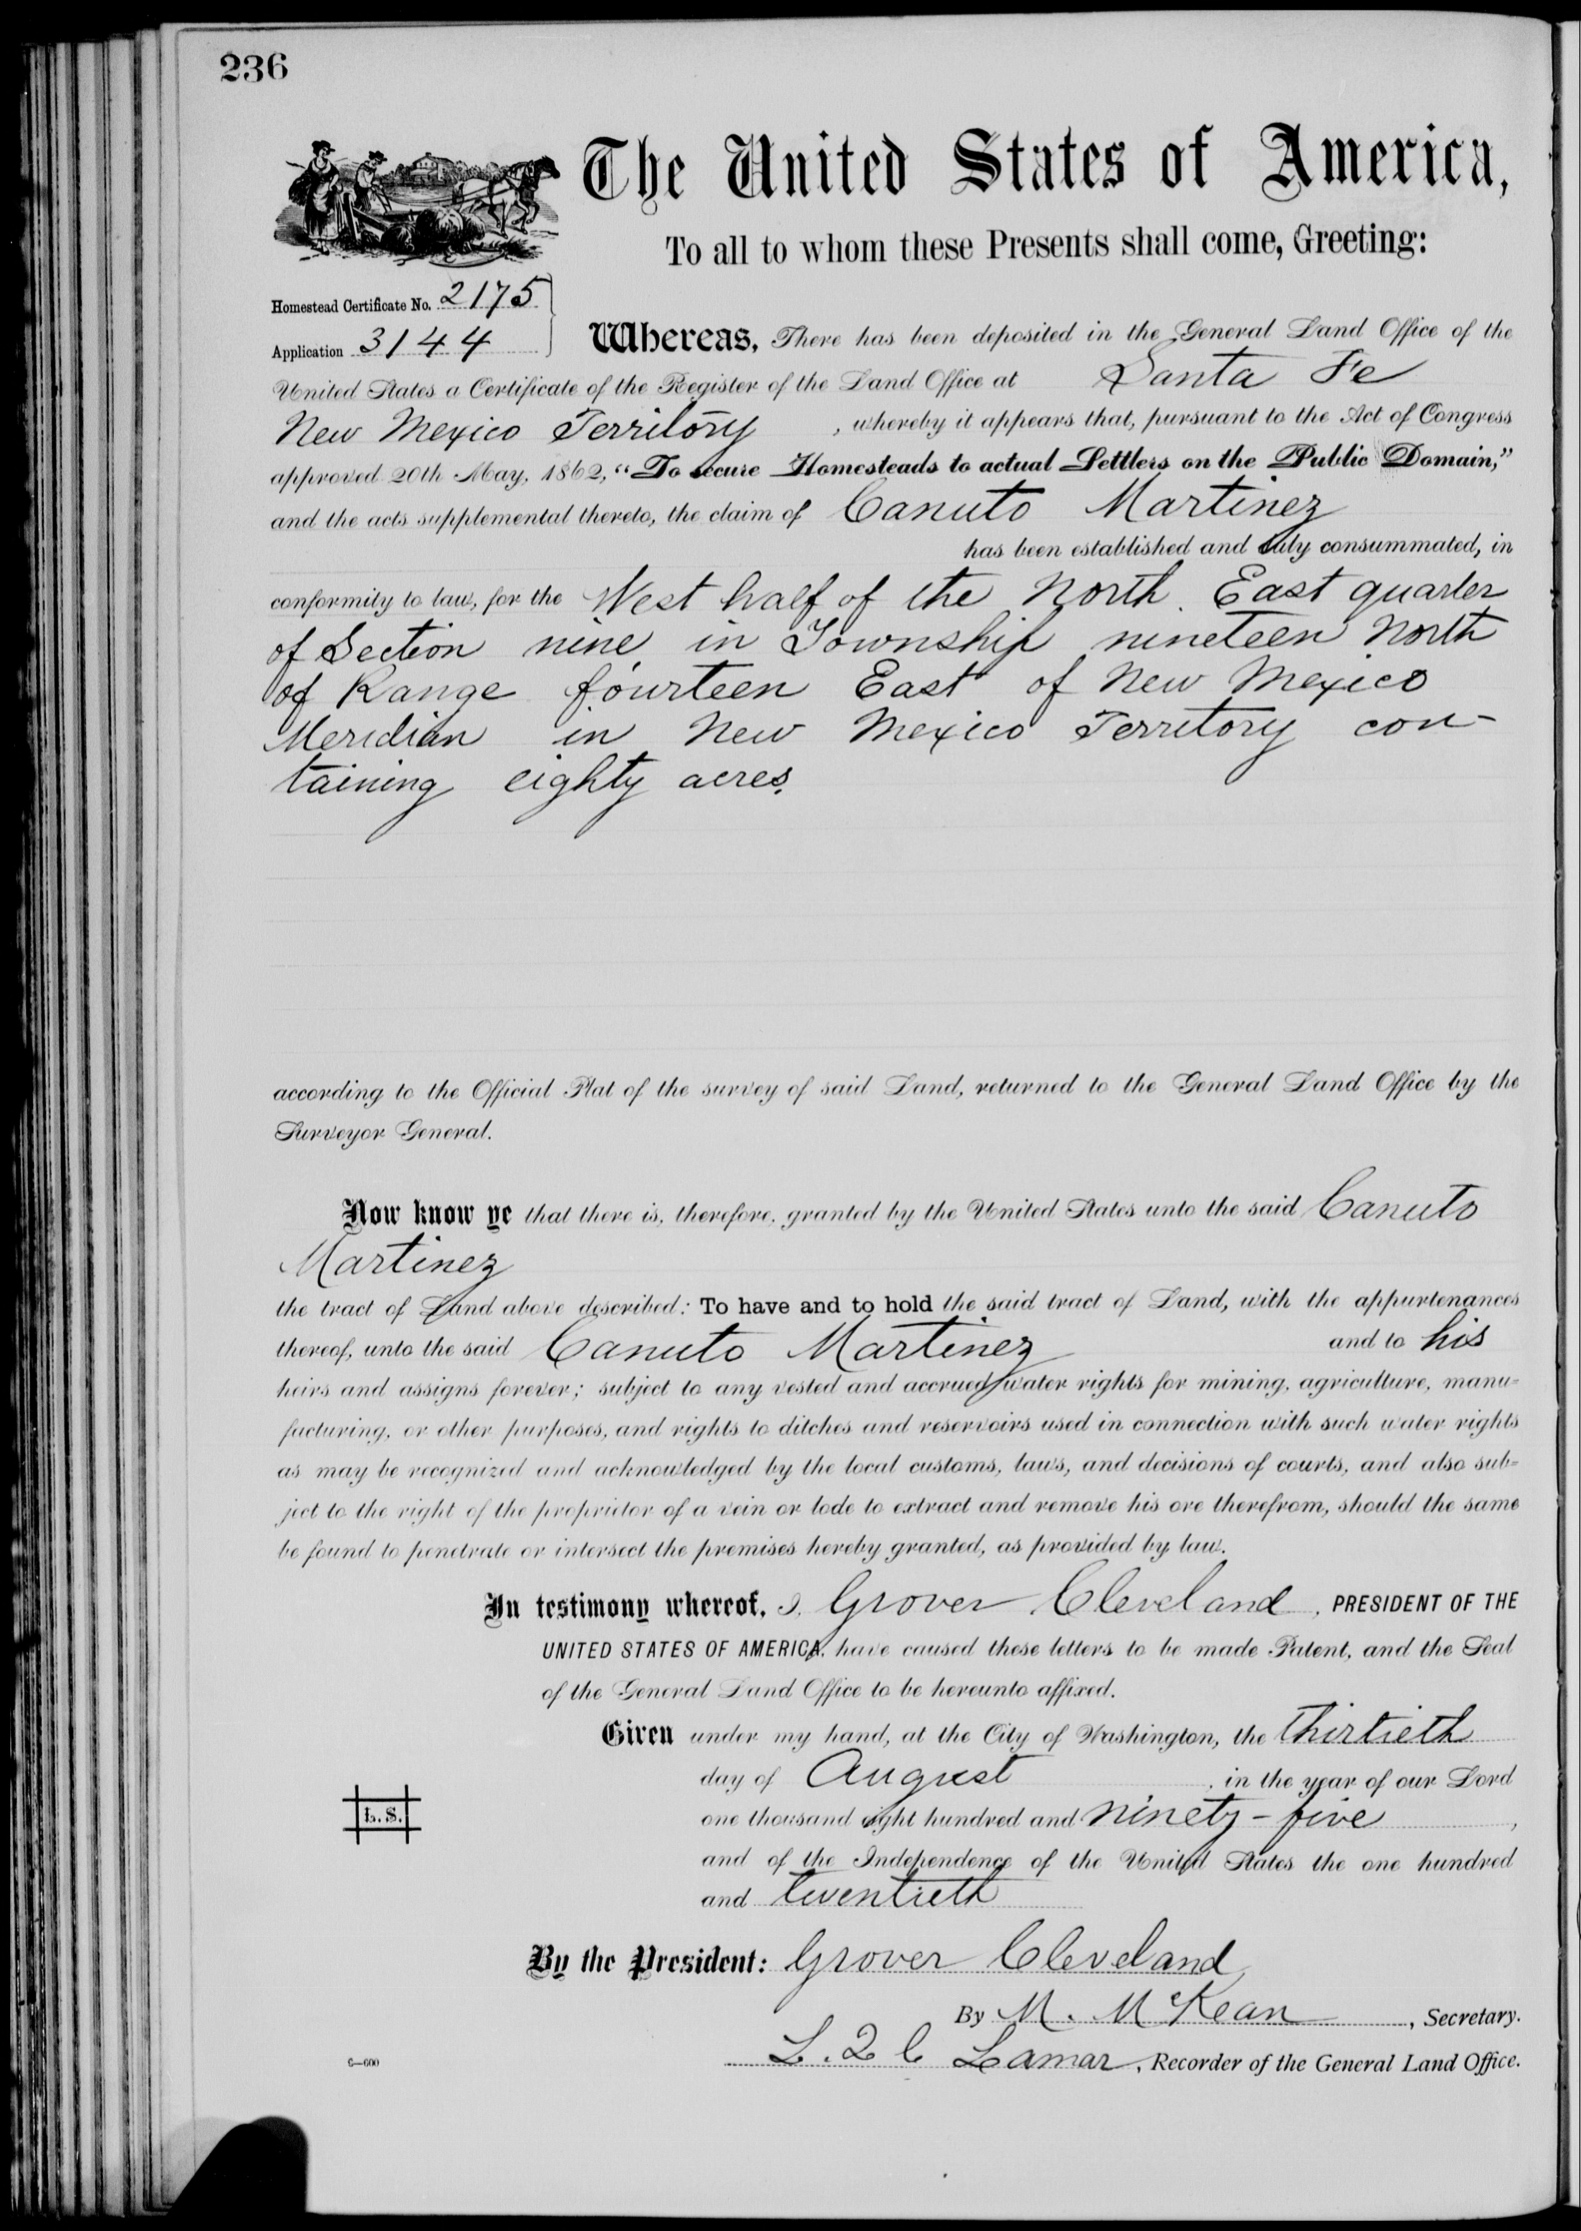 236
The United States of America,
To all to whom these Presents shall come, Greeting:
Homestead Certificate No. 2175
Application 3144
Whereas, There has been deposited in the General Land Office of the
United States a Certificate of the Register of the Land Office at Santa Fe
New Mexico Territory, whereby it appears that, pursuant to the Act of Congress
approved 20th May, 1862, "To secure Homesteads to actual Settlers on the Public Domain,"
and the acts supplemental thereto, the claim of Canuto Martinez
has been established and duly consummated, in
conformity to law, for the West half of the North East quarter
of Section nine in Township nineteen North
of Range fourteen East of New Mexico
Meridian in New Mexico Territory con-
taining eighty acres.
according to the Official Plat of the survey of said Land, returned to the General Land Office by the
Surveyor General.
Now know ye that there is, therefore, granted by the United States unto the said Canuto
Martinez
the tract of Land above described: To have and to hold the said tract of Land, with the appurtenances
thereof, unto the said Canuto Martinez and to his
heirs and assigns forever; subject to any vested and accrued water rights for mining, agriculture, manu-
facturing, or other purposes, and rights to ditches and reservoirs used in connection with such water rights
as may be recognized and acknowledged by the local customs, laws, and decisions of courts, and also sub-
ject to the right of the proprietor of a vein or lode to extract and remove his ore therefrom, should the same
be found to penetrate or intersect the premises hereby granted, as provided by law.
In testimony whereof, I, Grover Cleveland, PRESIDENT OF THE
UNITED STATES OF AMERICA, have caused these letters to be made Patent, and the Seal
of the General Land Office to be hereunto affixed.
Given under my hand, at the City of Washington, the thirtieth
day of August, in the year of our Lord
one thousand eight hundred and ninety-five,
and of the Independence of the United States the one hundred
and twentieth
L. S.
By the President: Grover Cleveland
By M. McKean, Secretary.
L. Q C Lamar, Recorder of the General Land Office.
6—600